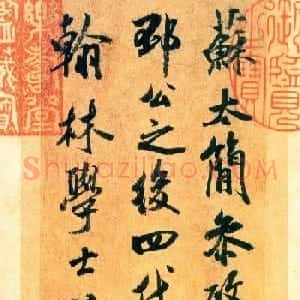 蘇太簡参政
邳公之後四代
翰林學士
Shufaziliao.com